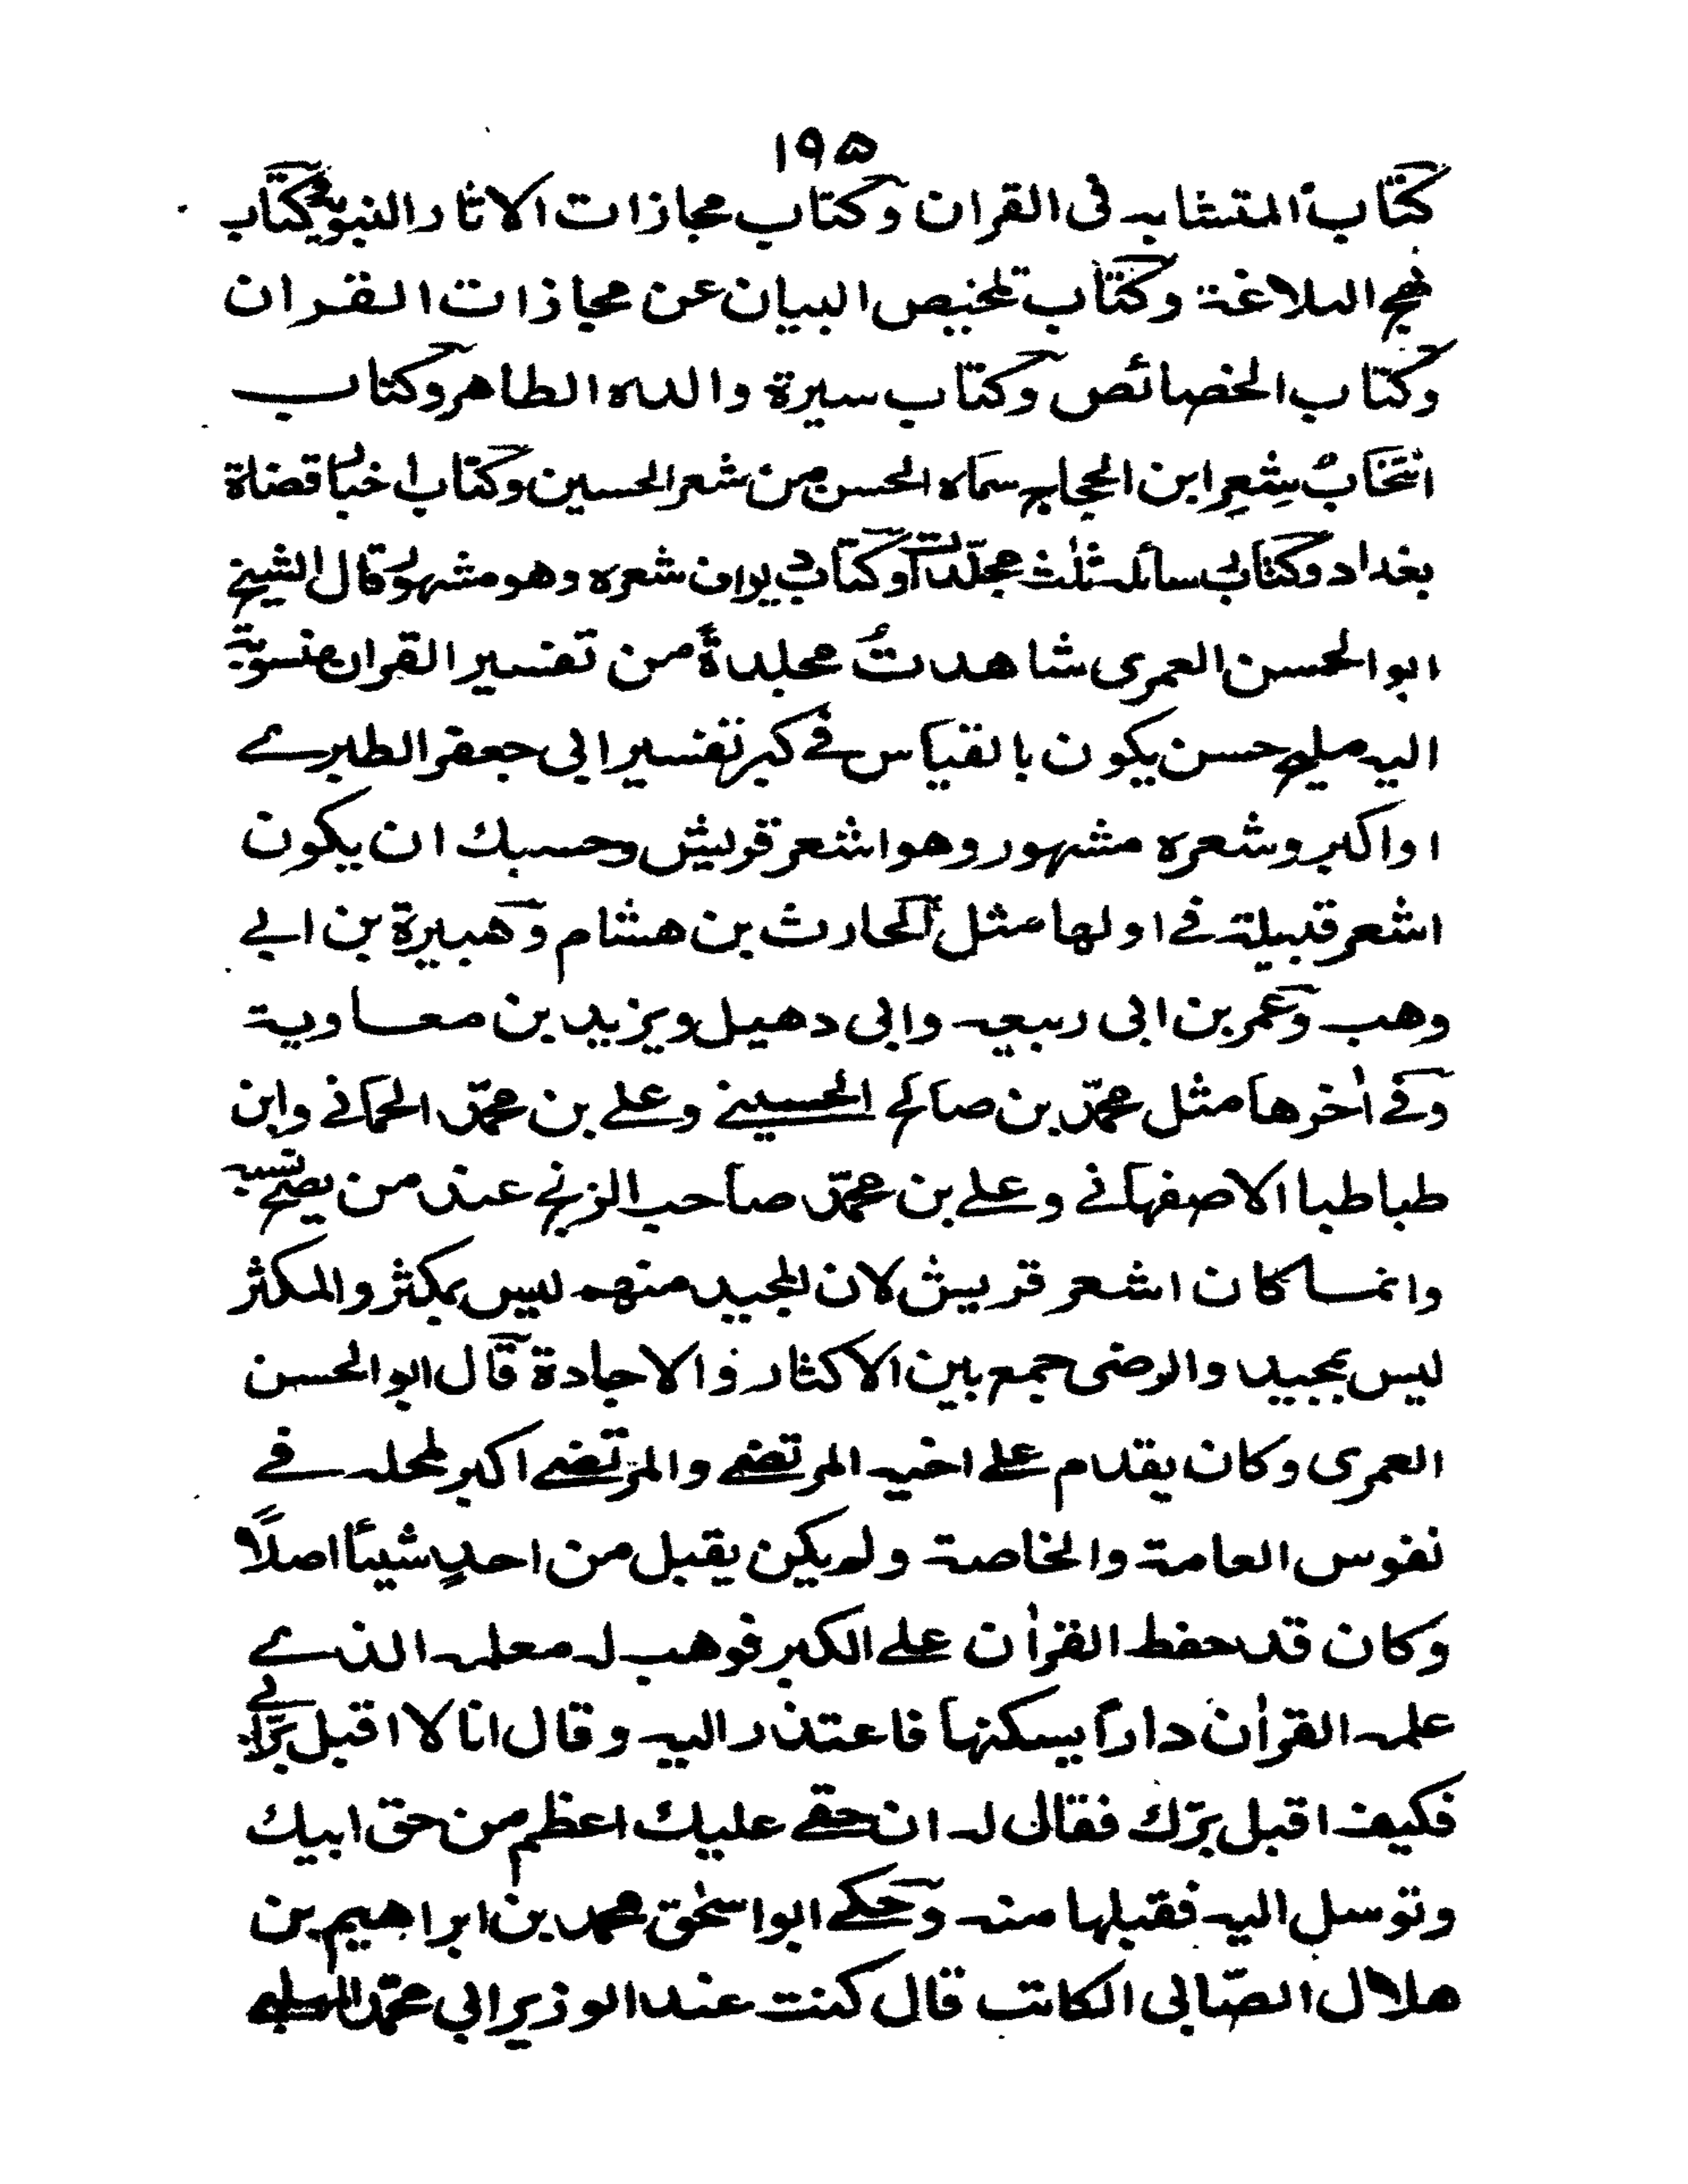 ١٩٥
كتاب المتشابه فى القران وكتاب مجازات الاثار النبوية وكتاب
نهج البلاغة وكتاب تلخيص البيان عن مجازات القران
وكتاب الخصائص وكتاب سيرة والده الطاهر وكتاب
انتخاب شعرِ ابن الحجاج سماه الحسن من شعر الحسين وكتاب اخبار قضاة
بغداد وكتاب رسائله ثلث مجلدات وكتاب ديوان شعره وهو مشهور قال الشيخ
ابو الحسن العمرى شاهدتُ مجلدةً من تفسير القران منسوبة
اليه مليح حسن يكون بالقياس فے كبر تفسير ابى جعفر الطبرے
او اكبر وشعره مشهور وهو اشعر قريش وحسبك ان يكون
اشعر قبيلة فے اولها مثل الحارث بن هشام وهبيرة بن ابے
وهب وعمر بن ابى ربيعه وابى دهيل ويزيد بن معاوية
وفے اٰخرها مثل محمّد بن صالح الحسينے وعلے بن محمّد الحمانے وابن
طباطبا الاصفهانے وعلے بن محمّد صاحب الزنج عند من يصح نسبه
وانما كان اشعر قريش لان المجيد منهم ليس بمكثر والمكثر
ليس بمجيد والرضى جمع بين الاكثار والاجادة قال ابو الحسن
العمرى وكان يقدم علے اخيه المرتضے والمرتضے اكبر لمحله فے
نفوس العامة والخاصة ولم يكن يقبل من احدٍ شيئاً اصلاً
وكان قد حفظ القراٰن علے الكبر فوهب له معلمه الذے
علمه القراٰن داراً يسكنها فاعتذر اليه وقال انا لا اقبل برّ ابے
فكيف اقبل برّك فقال له ان حقے عليك اعظم من حق ابيك
وتوسل اليه فقبلها منه وحكے ابو اسحٰق محمد بن ابراهيم بن
هلال الصّابى الكاتب قال كنت عند الوزير ابي محمّد المهلبے